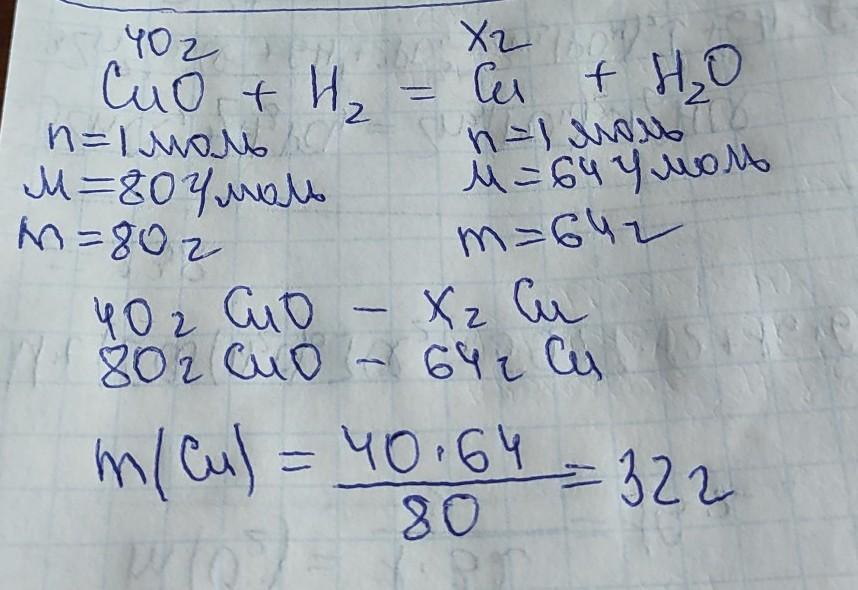 40 г х г
CuO + H₂ = Cu + H₂O
n = 1 моль n = 1 моль
M = 80 г/моль M = 64 г/моль
m = 80 г m = 64 г
40 г CuO – х г Cu
80 г CuO – 64 г Cu
m(Cu) = 40·64 / 80 = 32 г